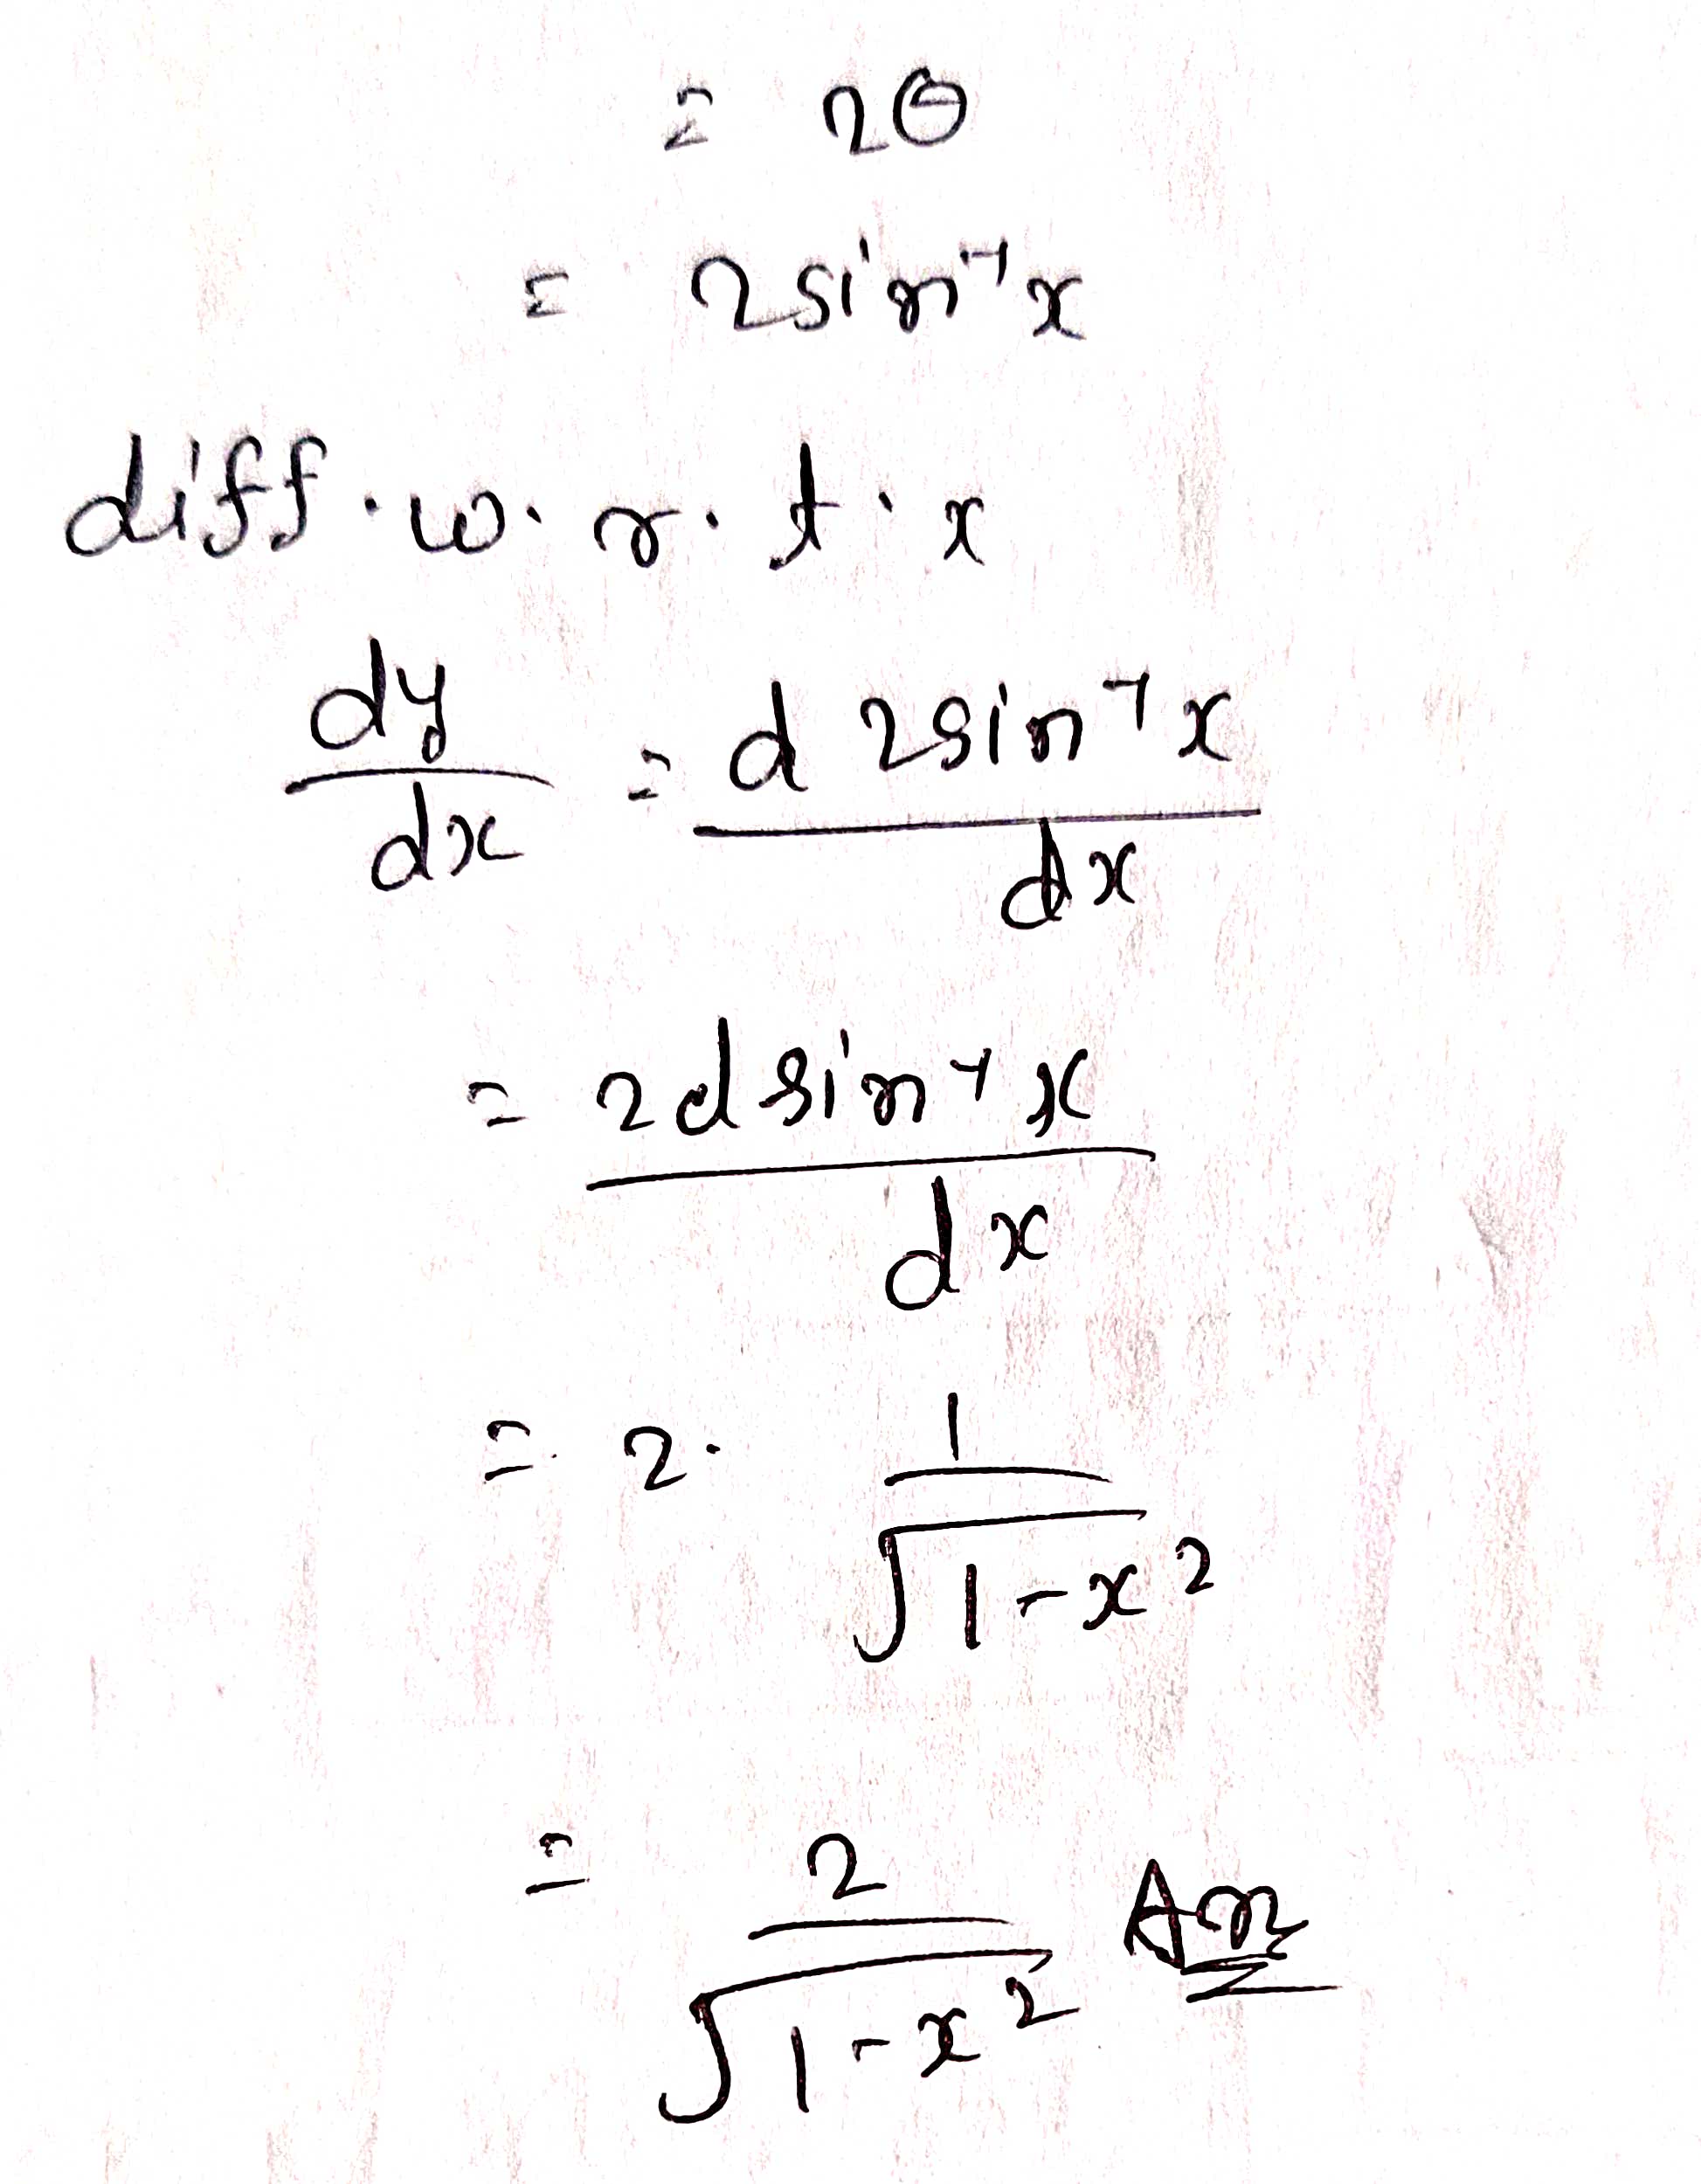 = 2θ
= 2sin⁻¹x
diff.w.r.t.x
dy/dx = d 2sin⁻¹x/dx
= 2d sin⁻¹x/dx
= 2. 1/√1-x²
= 2/√1-x² Ans